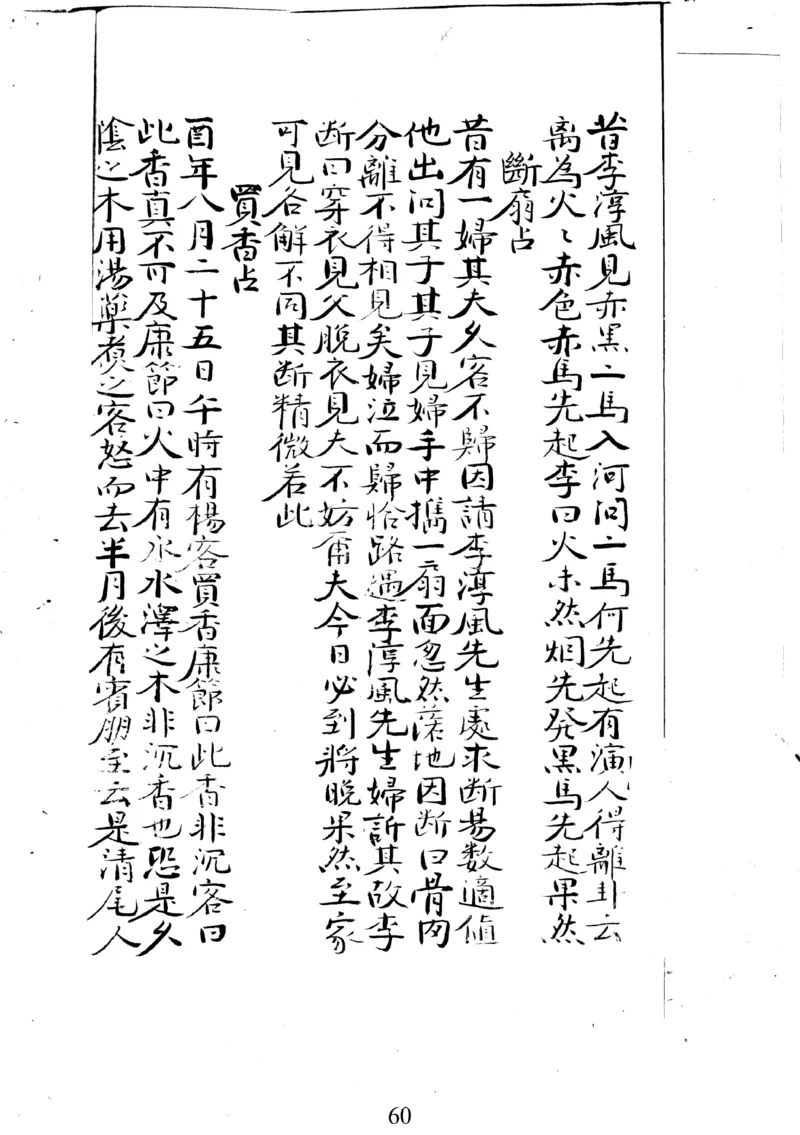 昔李淳風見赤黑二馬入河问二馬何先起有演人得離卦云
离為火〻赤色赤馬先起李曰火未然烟先発黑馬先起果然
斷扇占
昔有一婦其夫久客不歸因請李淳風先生處求断易数適值
他出问其子其子見婦手中攜一扇面忽然落地因断曰骨肉
分離不得相見矣婦泣而歸恰路遇李淳風先生婦訴其故李
断曰穿衣見父脱衣見夫不妨爾夫今日必到將晚果然至家
可見各解不同其断精微若此
買香占
酉年八月二十五日午時有楊客買香康節曰此香非沉客曰
此香真不可及康節曰火中有水水澤之木非沉香也恐是久
陰之木用湯藥煑之客怒而去半月後有賓朋至云是清尾人
60